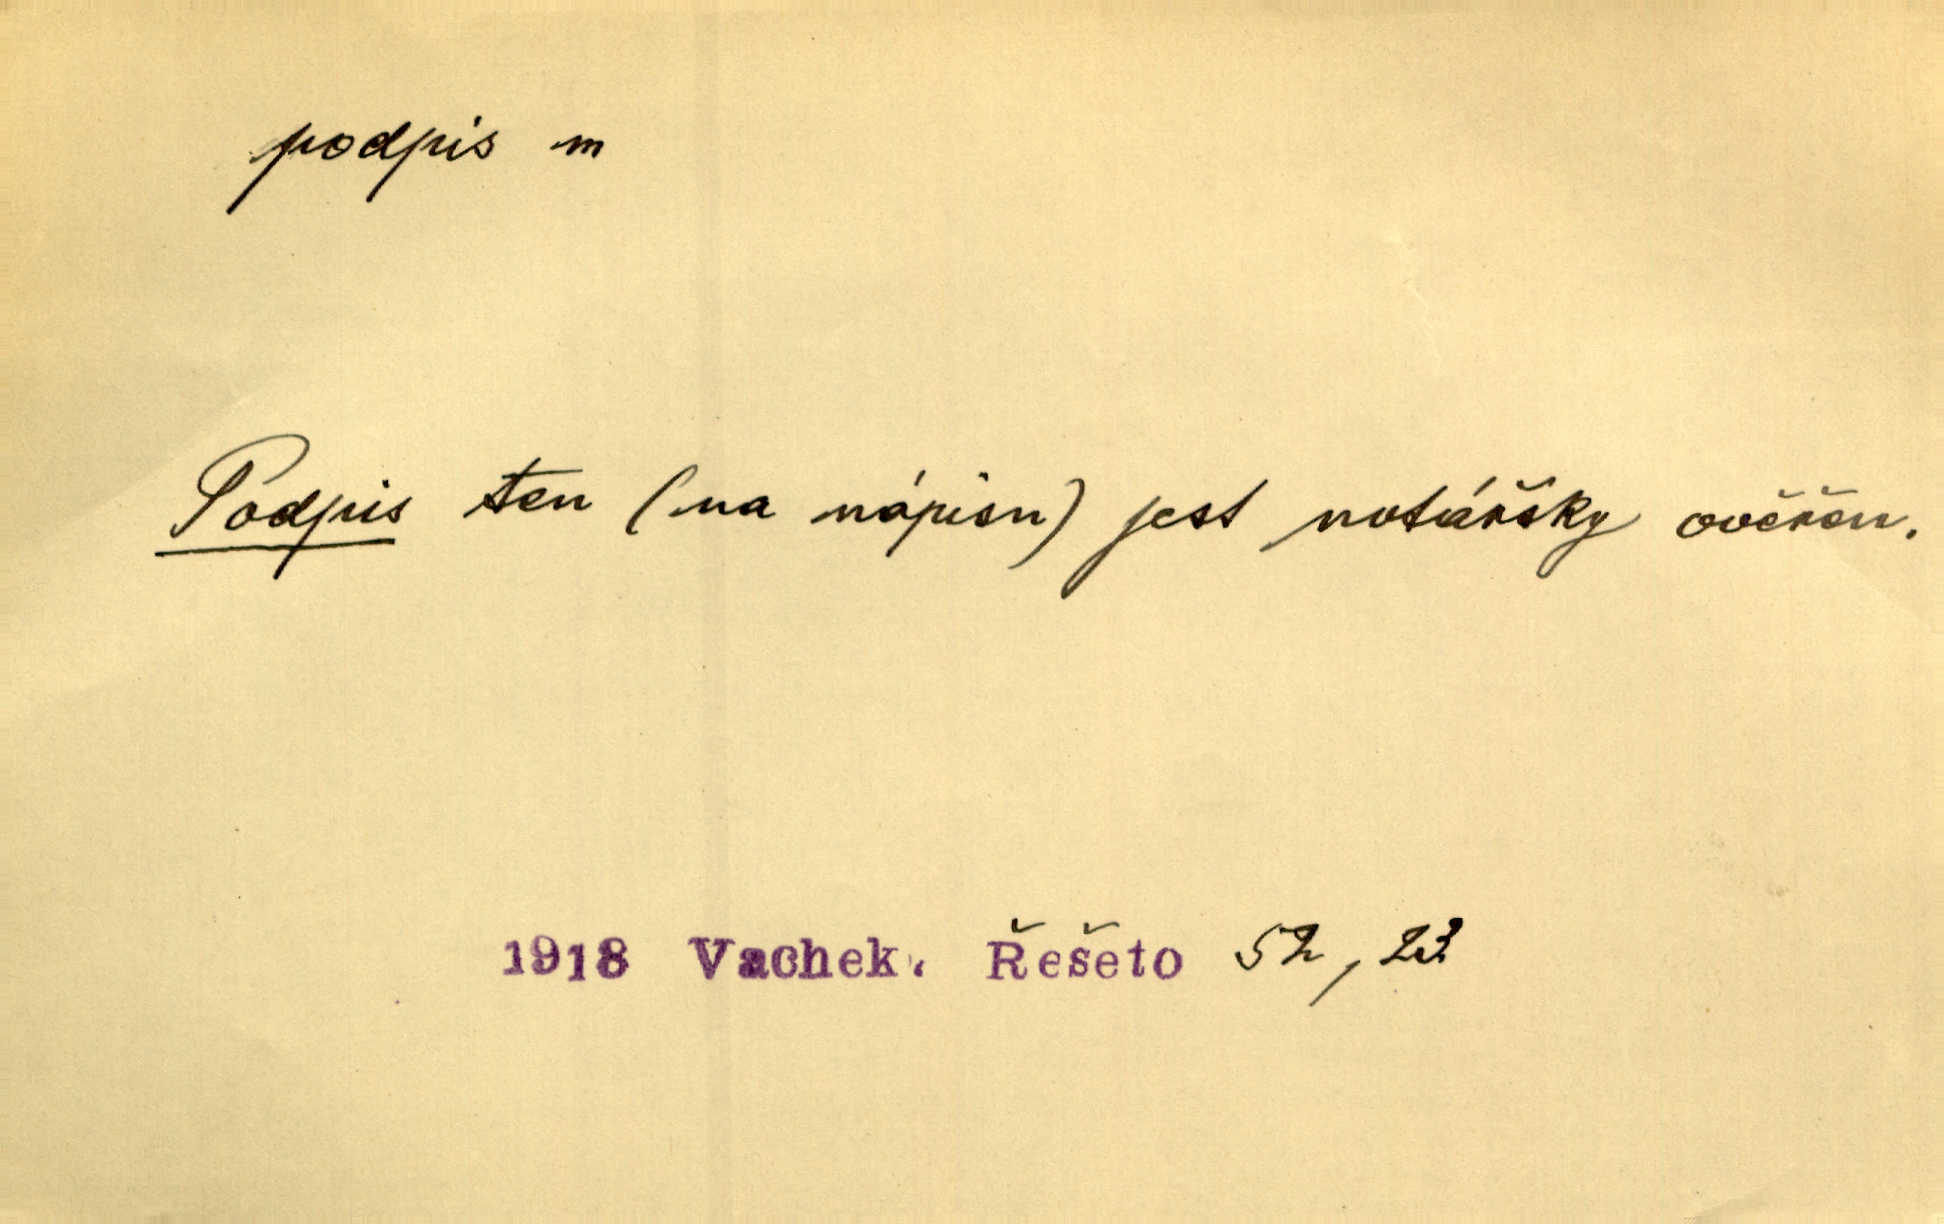 podpis m
Podpis ten (na nápisu) jest notářsky ověřen.
1918 Vachek. Řešeto 52, 23